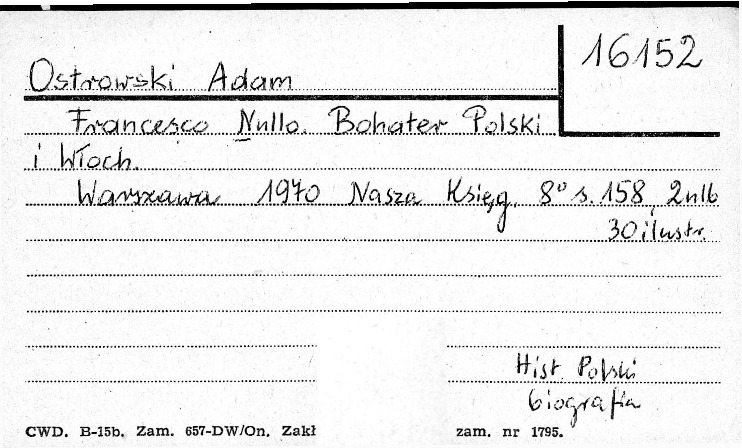 16152
Ostrowski Adam
Francesco Nullo. Bohater Polski
i Włoch.
Warszawa 1970 Nasza Księg. 8° s. 158, 2nlb
30 ilustr.
Hist Polski
biografia
CWD. B-15b. Zam. 657-DW/On. Zakł zam. nr 1795.